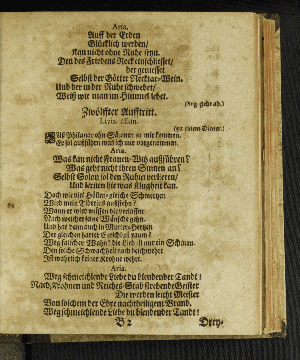 Aria.
Auff der Erden
Glücklich werden/
Kan nicht ohne Ruhe seyn.
Den des Friedens Rock einschliesset/
der geniesset
Selbst der Götter Necktar-Wein.
Und der in der Ruhe schwebet/
Weiß wie man im Himmel lebet.
(Arg. geht ab.)
Zwölffter Aufftritt.
Livia. allein.
(zu einem Diener.)
Laß Philanar ohn Säumen zu mir kommen.
Er sol ausführen was ich mir vorgenommen.
Aria.
Was kan nicht Frauen-Witz außführen?
Was geht nicht ihren Sinnen an?
Selbst Solon sol den Ruhm verlieren/
Und lernen hie was Klugheit kan.
Doch wie viel Höllen-gleiche Schmertzen
Wird mein Tiberius ausstehn?
Wann er wird müssen
Nach welcher seine Wünsche gehn.
Und hat dann auch im Mutter-Hertzen
Der gleichen harter Entschluß raum?
Weg falscher Wahn! die Lieb ist nur ein Schaum.
Den solche Schwachheit noch beschweret
Ist warlich keiner Krohne wehrt.
Aria.
Weg schmeichlende Liebe du blendender Tandt!
Nach Krohnen und Reiches-Stab strebende Geister
Die werden leicht Meister
Von solchem der Ehre nachtheiligem Brand.
Weg schmeichlende Liebe du blendender Tandt!
B 2
Drey-